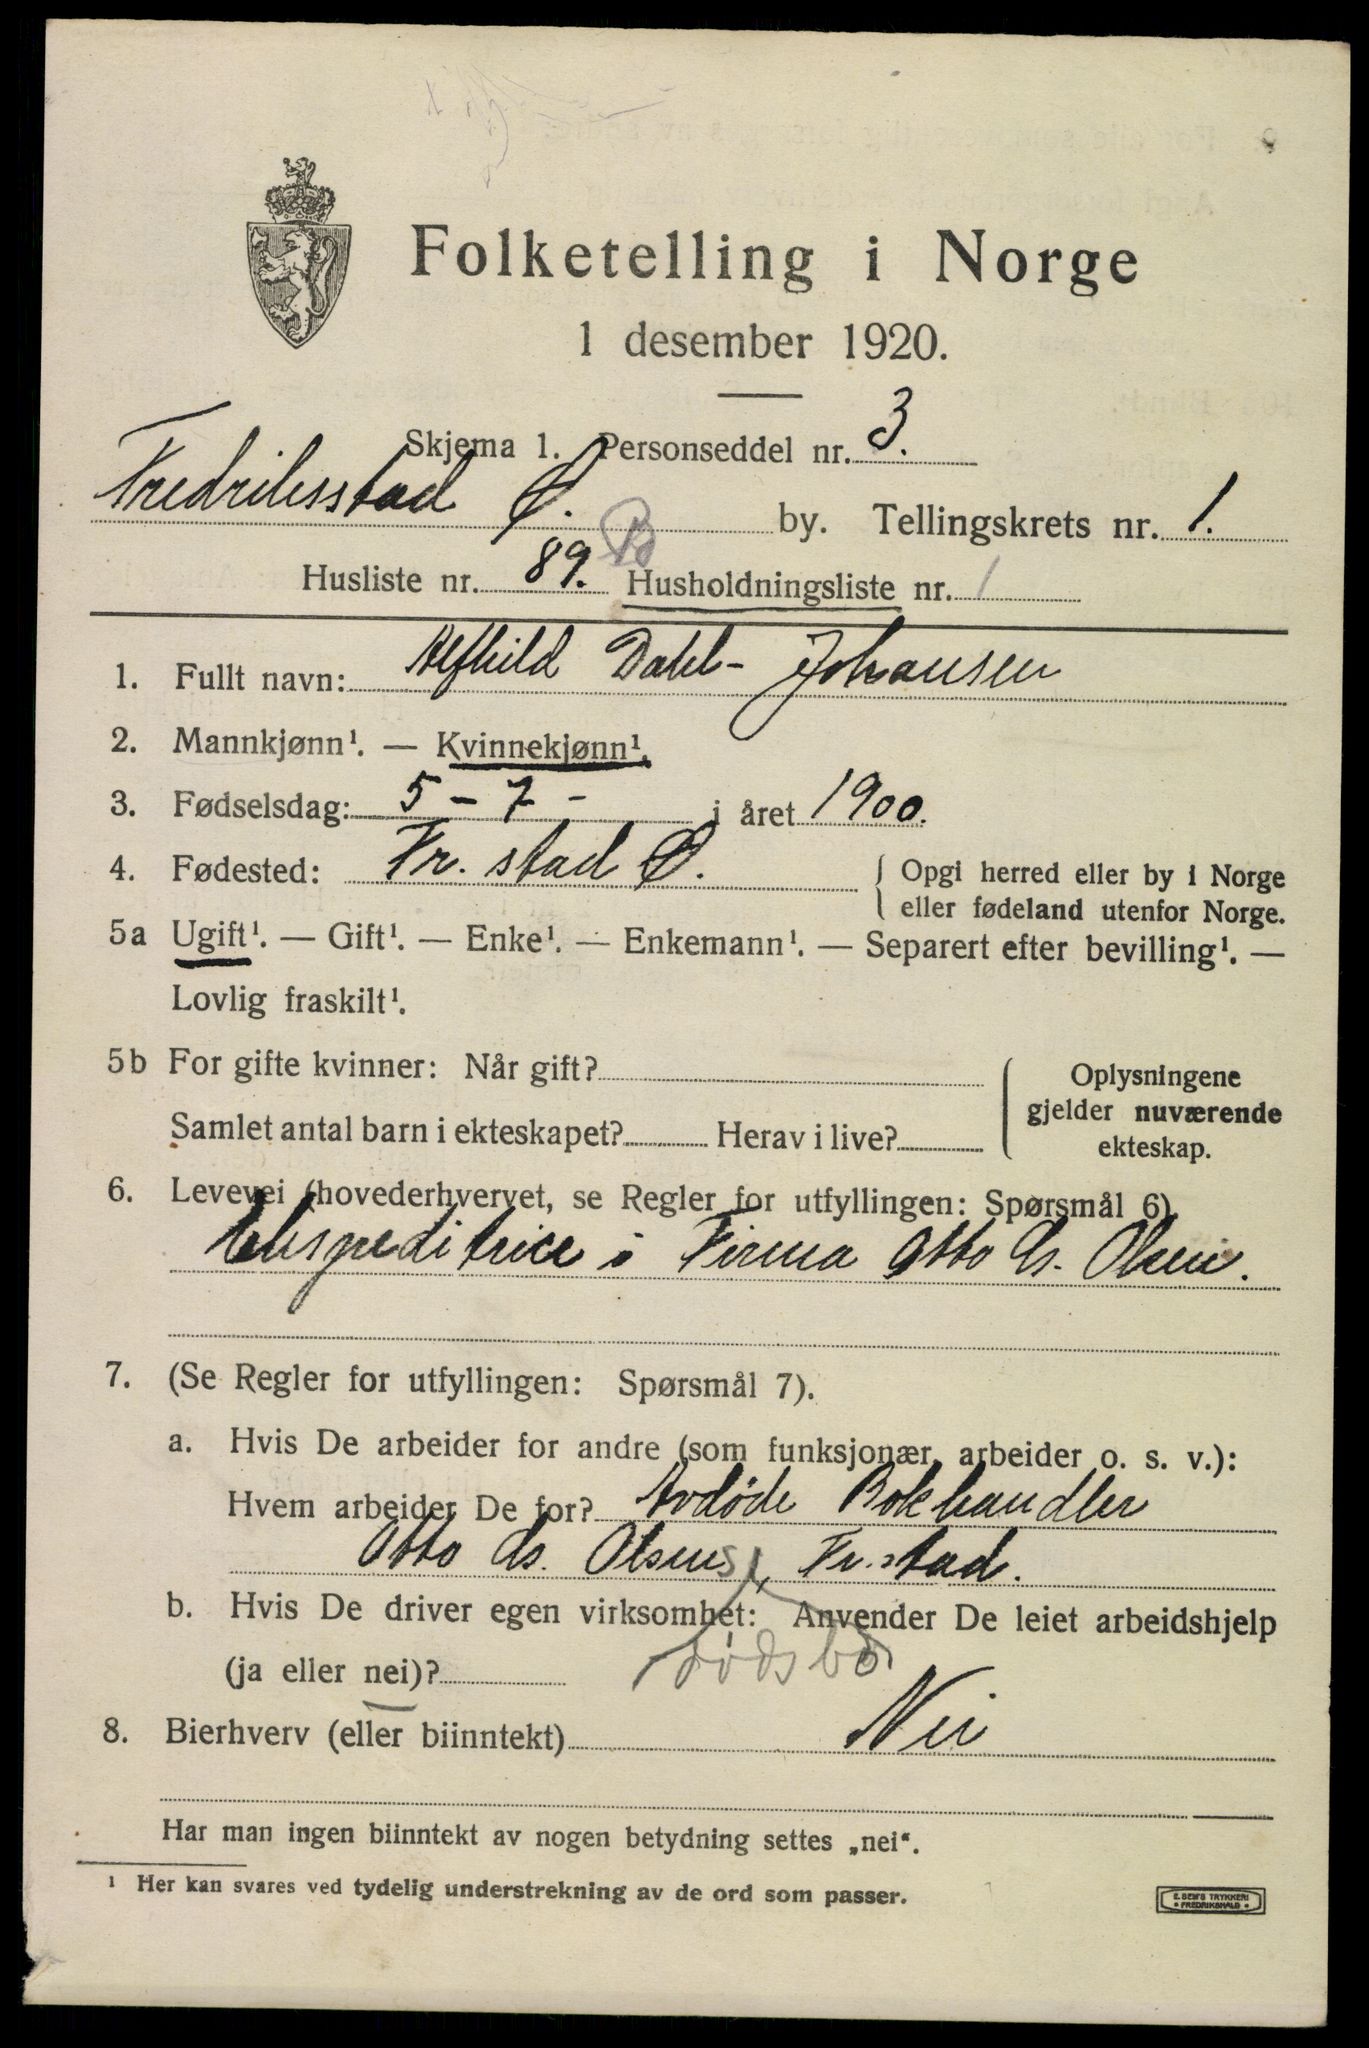 Folketelling i Norge
1 desember 1920.
Skjema 1. Personseddel nr. 3.
Fredriksstad Ø. by. Tellingskrets nr. 1.
Husliste nr. 89. B Husholdningsliste nr. 1
1. Fullt navn: Alfhild Dahl-Johansen
2. Mannkjønn¹. — Kvinnekjønn¹.
3. Fødselsdag: 5 - 7 - i året 1900.
4. Fødested: Fr. stad Ø. { Opgi herred eller by i Norge
eller fødeland utenfor Norge.
5a Ugift¹. — Gift¹. — Enke¹. — Enkemann¹. — Separert efter bevilling¹. —
Lovlig fraskilt¹.
5b For gifte kvinner: Når gift?
Samlet antal barn i ekteskapet? Herav i live?
{ Oplysningene
gjelder nuværende
ekteskap.
6. Levevei (hovederhvervet, se Regler for utfyllingen: Spørsmål 6)
Ekspeditrice i Firma Otto Gs. Olsen.
7. (Se Regler for utfyllingen: Spørsmål 7).
a. Hvis De arbeider for andre (som funksjonær, arbeider o. s. v.):
Hvem arbeider De for? Avdøde Bokhandler
Otto Gs. Olsens, Fr.stad.
b. Hvis De driver egen virksomhet: Anvender De leiet arbeidshjelp
dødsbo
(ja eller nei)?
8. Bierhverv (eller biinntekt) Nei
Har man ingen biinntekt av nogen betydning settes „nei“.
¹ Her kan svares ved tydelig understrekning av de ord som passer.
E. SEM'S TRYKKERI
• FREDRIKSHALD •